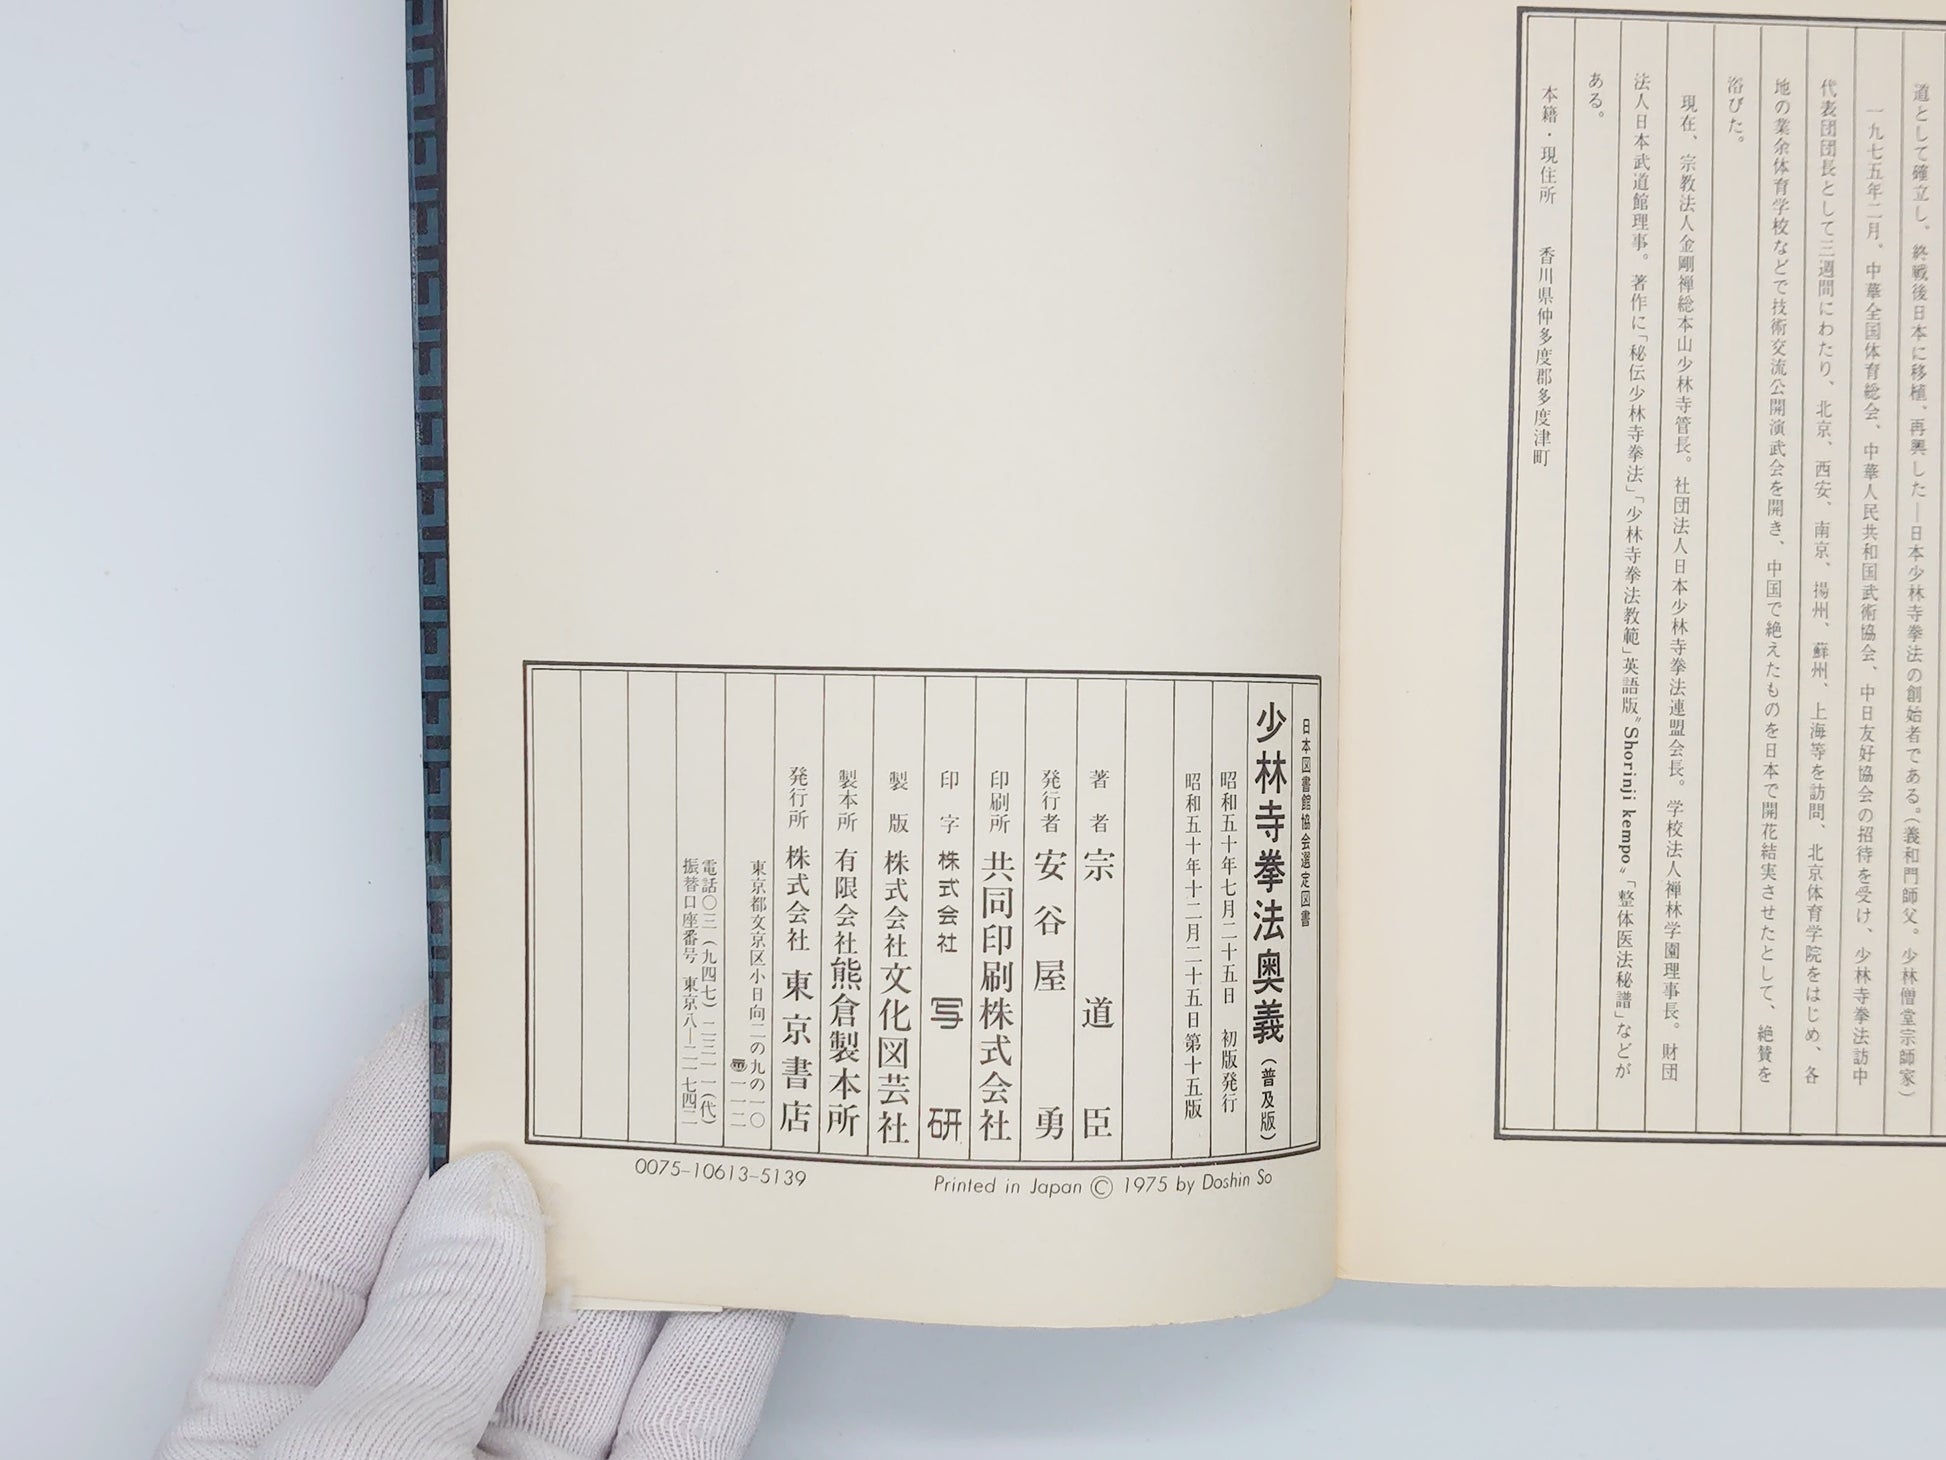 道として確立し、終戦後日本に移植、再興した―日本少林寺拳法の創始者である。(義和門師父。少林僧堂宗師家)
一九七五年二月、中華全国体育総会、中華人民共和国武術協会、中日友好協会の招待を受け、少林寺拳法訪中
代表団団長として三週間にわたり、北京、西安、南京、揚州、蘇州、上海等を訪問、北京体育学院をはじめ、各
地の業余体育学校などで技術交流公開演武会を開き、中国で絶えたものを日本で開花結実させたとして、絶賛を
浴びた。
現在、宗教法人金剛禅総本山少林寺管長。社団法人日本少林寺拳法連盟会長。学校法人禅林学園理事長。財団
法人日本武道館理事。著作に「秘伝少林寺拳法」「少林寺拳法教範」英語版"Shorinji kempo"「整体医法秘譜」などが
ある。
本籍・現住所 香川県仲多度郡多度津町
日本図書館協会選定図書
少林寺拳法奥義(普及版)
昭和五十年七月二十五日 初版発行
昭和五十年十二月二十五日第十五版
著者 宗道臣
発行者 安谷屋 勇
印刷所 共同印刷株式会社
印字 株式会社 写研
製版 株式会社文化図芸社
製本所 有限会社熊倉製本所
発行所 株式会社 東京書店
東京都文京区小日向二の九の一〇
〠一一二
電話〇三(九四七)二三一一(代)
振替口座番号 東京八―二一七四二
0075-10613-5139
Printed in Japan © 1975 by Doshin So